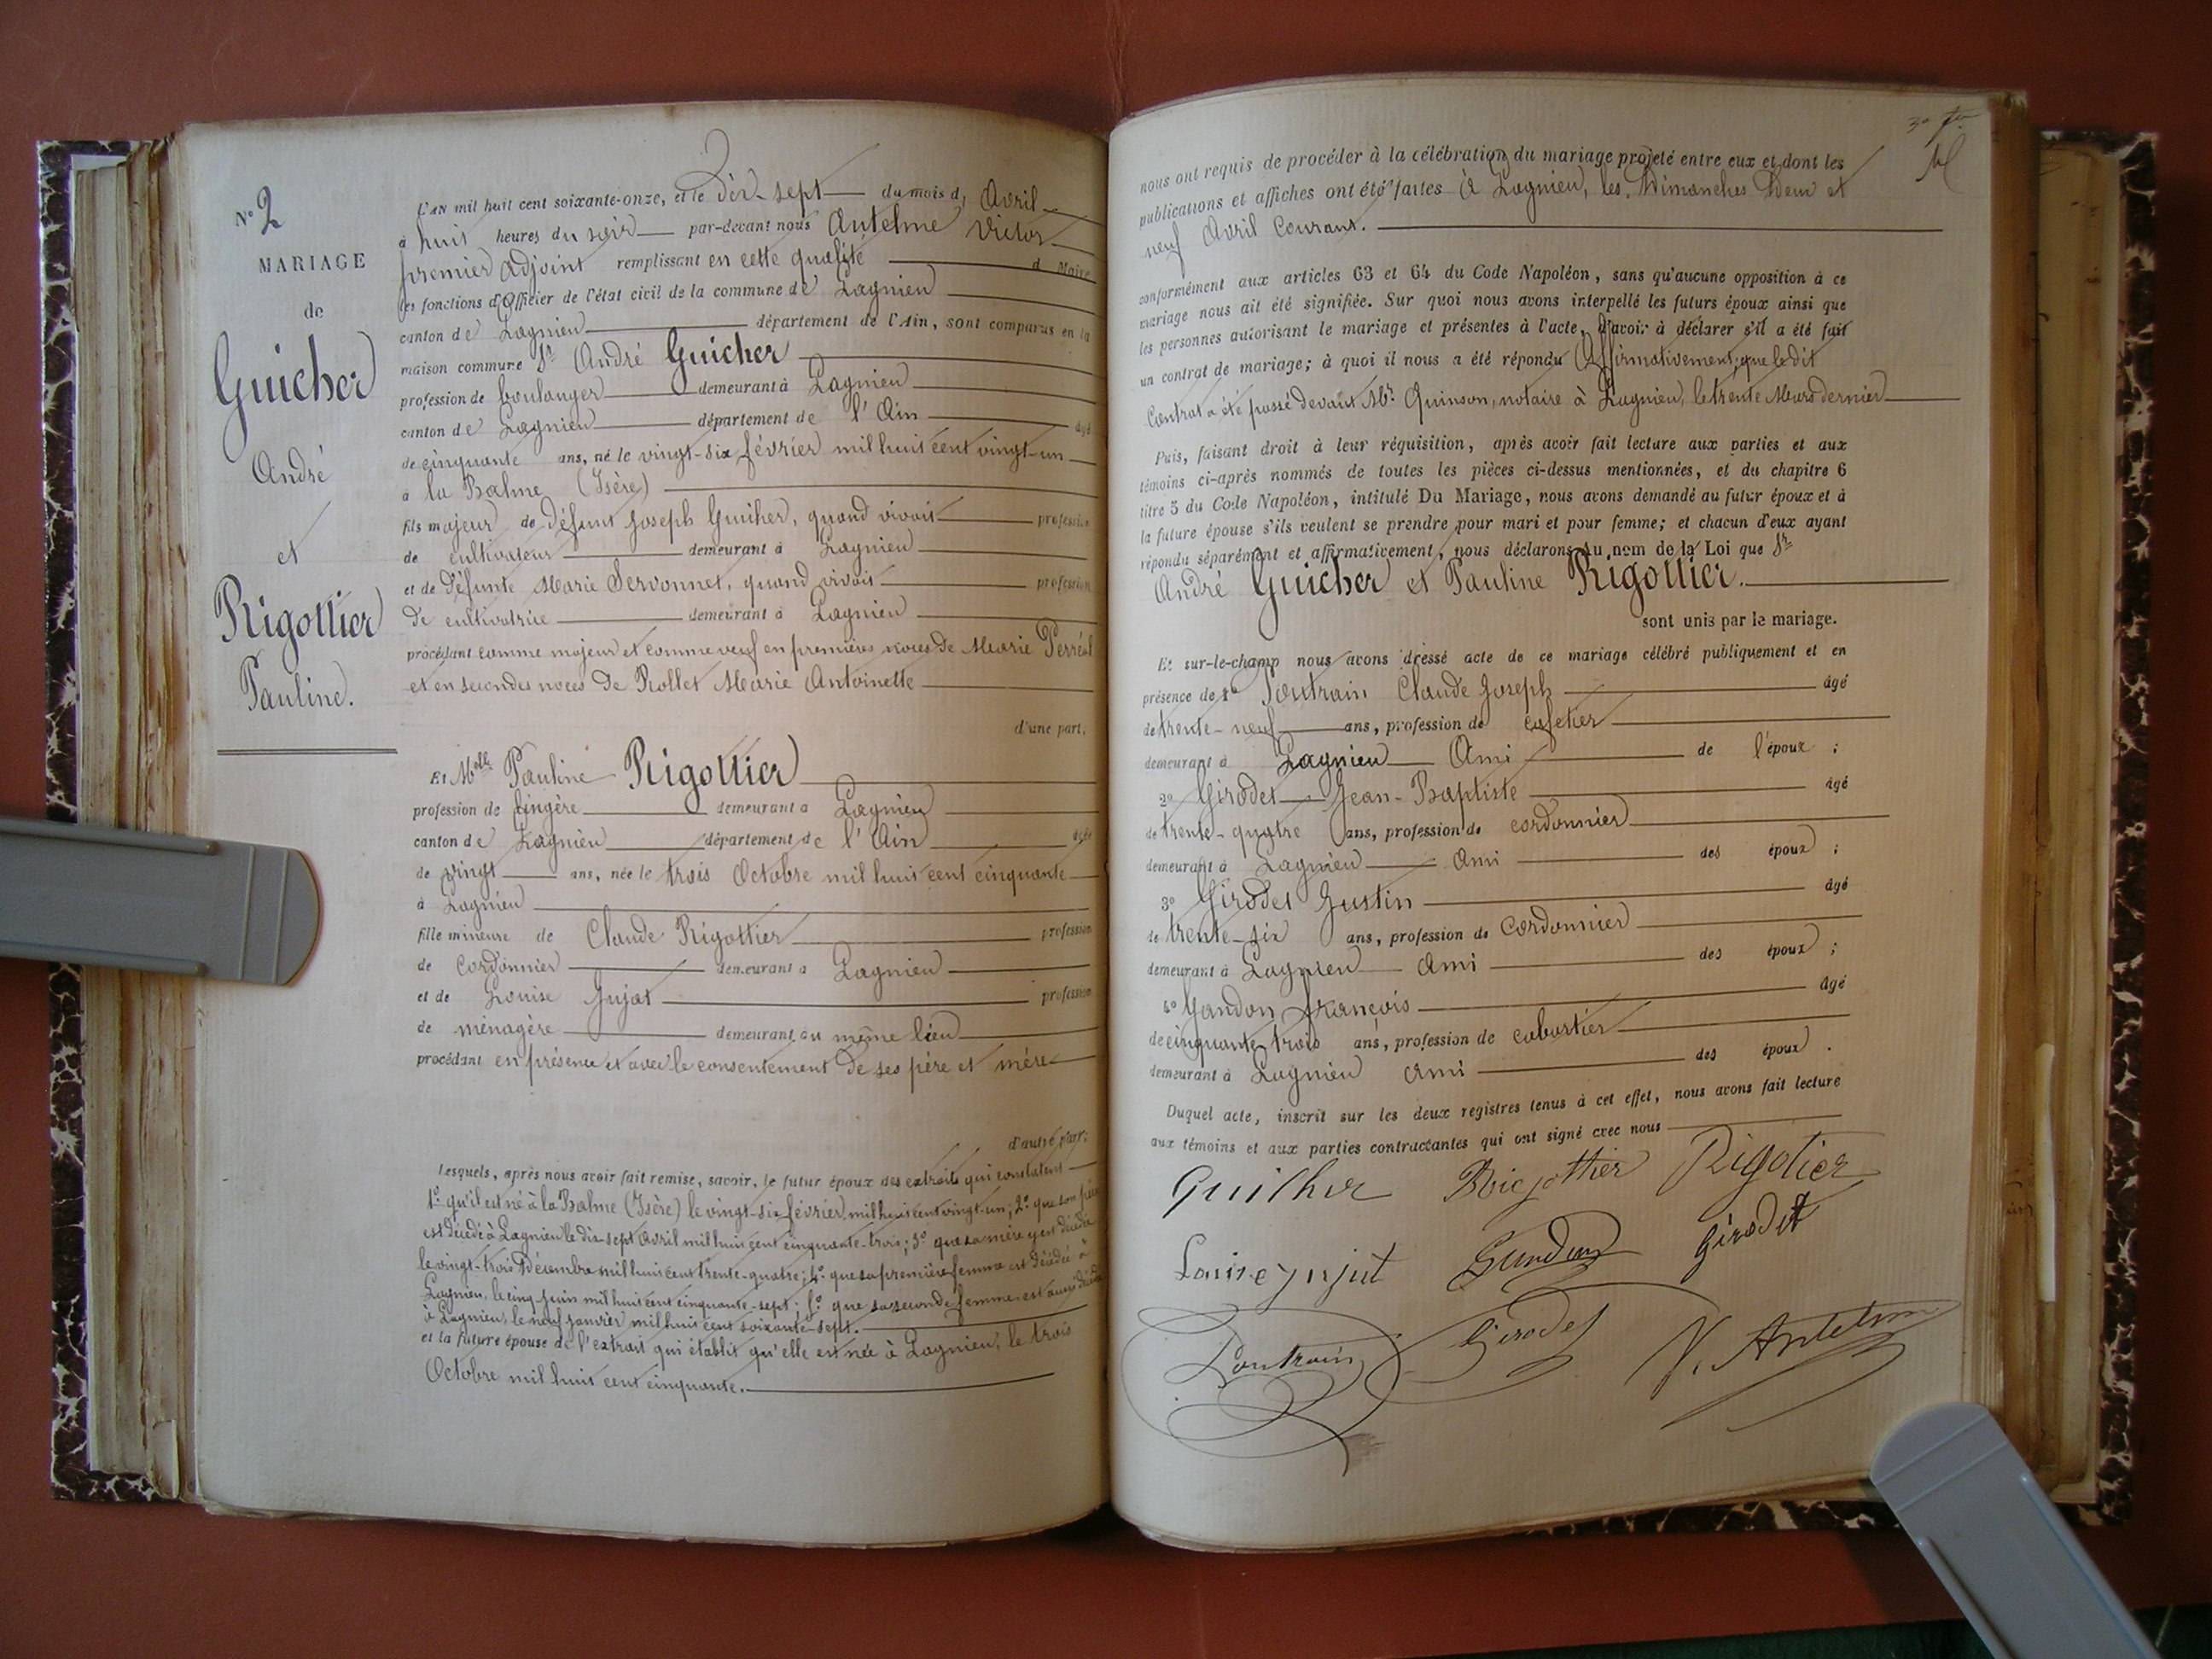 N° 2
MARIAGE
de
Guicher
André
et
Rigottier
Pauline.
L'AN mil huit cent soixante-onze, et le dix-sept du mois d' Avril
à huit heures du soir par-devant nous Antelme Victor
premier adjoint remplissant en cette qualité d Maire
les fonctions d'Officier de l'état civil de la commune de Lagnieu
canton de Lagnieu département de l'Ain, sont comparus en la
maison commune Sr André Guicher
profession de boulanger demeurant à Lagnieu
canton de Lagnieu département de l'Ain âgé
de cinquante ans, né le vingt-six février mil huit cent vingt-un
à la Balme (Isère)
fils majeur de défunt Joseph Guicher, quand vivait profession
de cultivateur demeurant à Lagnieu
et de défunte Marie Servonnet, quand vivait profession
de cultivatrice demeurant à Lagnieu
procédant comme majeur et comme veuf en premières noces de Marie Perréal
et en secondes noces de Rollet Marie Antoinette
d'une part.
Et Melle Pauline Rigottier
profession de lingère demeurant à Lagnieu
canton de Lagnieu département de l'Ain âgée
de vingt ans, née le trois Octobre mil huit cent cinquante
à Lagnieu
fille mineure de Claude Rigottier profession
de cordonnier demeurant à Lagnieu
et de Louise Jujat profession
de ménagère demeurant au même lieu
procédant en présence et avec le consentement de ses père et mère
d'autre part.
Lesquels, après nous avoir fait remise, savoir, le futur époux des extraits qui constatent
1° qu'il est né à la Balme (Isère) le vingt-six février mil huit cent vingt-un; 2° que son père
est décédé à Lagnieu le dix-sept Avril mil huit cent cinquante-trois; 3° que sa mère y est décédée
le vingt-trois Décembre mil huit cent trente-quatre; 4° que sa première femme est décédée à
Lagnieu, le cinq Juin mil huit cent cinquante-sept; 5° que sa seconde femme est aussi décédée
à Lagnieu, le neuf janvier mil huit cent soixante-sept.
et la future épouse de l'extrait qui établit qu'elle est née à Lagnieu, le trois
Octobre mil huit cent cinquante.
nous ont requis de procéder à la célébration du mariage projeté entre eux et dont les
publications et affiches ont été faites à Lagnieu, les Dimanches Deux et
neuf Avril Courant.
conformément aux articles 63 et 64 du Code Napoléon, sans qu'aucune opposition à ce
mariage nous ait été signifiée. Sur quoi nous avons interpellé les futurs époux ainsi que
les personnes autorisant le mariage et présentes à l'acte, d'avoir à déclarer s'il a été fait
un contrat de mariage; à quoi il nous a été répondu Affirmativement; que le dit
Contrat a été passé devant Me Quinson, notaire à Lagnieu, le trente Mars dernier
Puis, faisant droit à leur réquisition, après avoir fait lecture aux parties et aux
témoins ci-après nommés de toutes les pièces ci-dessus mentionnées, et du chapitre 6
titre 5 du Code Napoléon, intitulé Du Mariage, nous avons demandé au futur époux et à
la future épouse s'ils veulent se prendre pour mari et pour femme; et chacun d'eux ayant
répondu séparément et affirmativement, nous déclarons au nom de la Loi que Sr
André Guicher et Pauline Rigottier.
sont unis par le mariage.
Et sur-le-champ nous avons dressé acte de ce mariage célébré publiquement et en
présence de 1° Poutrain Claude Joseph âgé
de trente-neuf ans, profession de cafetier
demeurant à Lagnieu Ami de l'époux ;
2° Girodet Jean-Baptiste âgé
de trente-quatre ans, profession de cordonnier
demeurant à Lagnieu Ami des époux ;
3° Girodet Justin âgé
de trente-six ans, profession de cordonnier
demeurant à Lagnieu Ami des époux ;
4° Gandon François âgé
de cinquante trois ans, profession de cabartier
demeurant à Lagnieu Ami des époux .
Duquel acte, inscrit sur les deux registres tenus à cet effet, nous avons fait lecture
aux témoins et aux parties contractantes qui ont signé avec nous
Guicher Rigottier Rigotier
Louise jujat Gandon Girodet
Poutrain Girodet V. Antelme